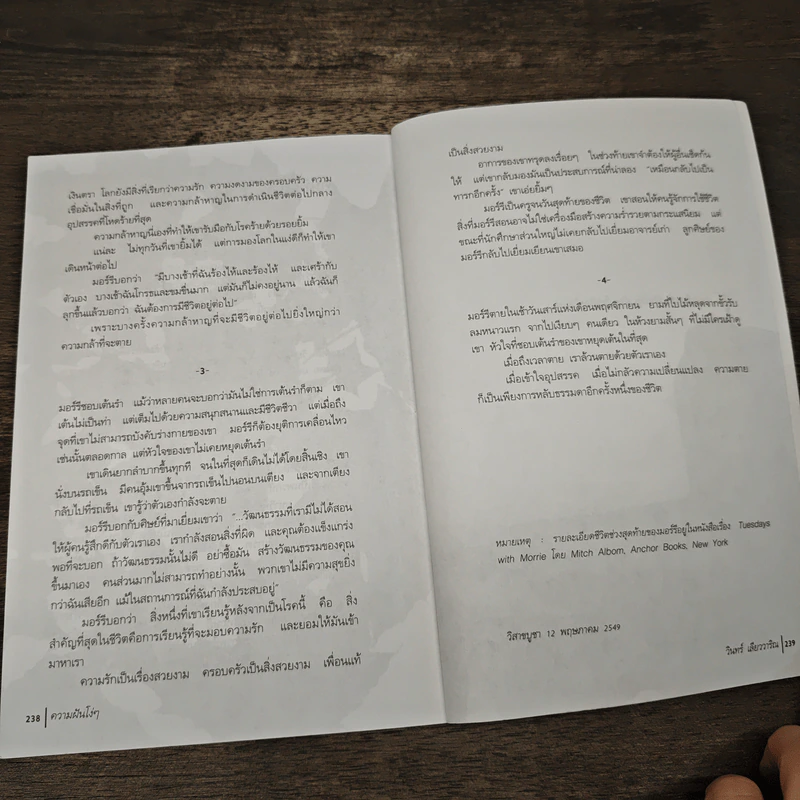 เงินตรา โลกยังมีสิ่งที่เรียกว่าความรัก ความงดงามของครอบครัว ความ
เชื่อมั่นในสิ่งที่ถูก และความกล้าหาญในการดำเนินชีวิตต่อไปกลาง
อุปสรรคที่โหดร้ายที่สุด
ความกล้าหาญนี่เองที่ทำให้เขารับมือกับโรคร้ายด้วยรอยยิ้ม
แน่ละ ไม่ทุกวันที่เขายิ้มได้ แต่การมองโลกในแง่ดีก็ทำให้เขา
เดินหน้าต่อไป
มอร์รีบอกว่า “มีบางเช้าที่ฉันร้องไห้และร้องไห้ และเศร้ากับ
ตัวเอง บางเช้าฉันโกรธและขมขื่นมาก แต่มันก็ไม่คงอยู่นาน แล้วฉันก็
ลุกขึ้นแล้วบอกว่า ฉันต้องการมีชีวิตอยู่ต่อไป”
เพราะบางครั้งความกล้าหาญที่จะมีชีวิตอยู่ต่อไปยิ่งใหญ่กว่า
ความกล้าที่จะตาย
-3-
มอร์รีชอบเต้นรำ แม้ว่าหลายคนจะบอกว่ามันไม่ใช่การเต้นรำก็ตาม เขา
เต้นไม่เป็นท่า แต่เต็มไปด้วยความสนุกสนานและมีชีวิตชีวา แต่เมื่อถึง
จุดที่เขาไม่สามารถบังคับร่างกายของเขา มอร์รีก็ต้องยุติการเคลื่อนไหว
เช่นนั้นตลอดกาล แต่หัวใจของเขาไม่เคยหยุดเต้นรำ
เขาเดินยากลำบากขึ้นทุกที จนในที่สุดก็เดินไม่ได้โดยสิ้นเชิง เขา
นั่งบนรถเข็น มีคนอุ้มเขาขึ้นจากรถเข็นไปนอนบนเตียง และจากเตียง
กลับไปที่รถเข็น เขารู้ว่าตัวเองกำลังจะตาย
มอร์รีบอกกับศิษย์ที่มาเยี่ยมเขาว่า “...วัฒนธรรมที่เรามีไม่ได้สอน
ให้ผู้คนรู้สึกดีกับตัวเราเอง เรากำลังสอนสิ่งที่ผิด และคุณต้องแข็งแกร่ง
พอที่จะบอก ถ้าวัฒนธรรมนั้นไม่ดี อย่าซื้อมัน สร้างวัฒนธรรมของคุณ
ขึ้นมาเอง คนส่วนมากไม่สามารถทำอย่างนั้น พวกเขาไม่มีความสุขยิ่ง
กว่าฉันเสียอีก แม้ในสถานการณ์ที่ฉันกำลังประสบอยู่”
มอร์รีบอกว่า สิ่งหนึ่งที่เขาเรียนรู้หลังจากเป็นโรคนี้ คือ สิ่ง
สำคัญที่สุดในชีวิตคือการเรียนรู้ที่จะมอบความรัก และยอมให้มันเข้า
มาหาเรา
ความรักเป็นเรื่องสวยงาม ครอบครัวเป็นสิ่งสวยงาม เพื่อนแท้
238 ความฝันโง่ๆ
เป็นสิ่งสวยงาม
อาการของเขาทรุดลงเรื่อยๆ ในช่วงท้ายเขาจำต้องให้ผู้อื่นเช็ดก้น
ให้ แต่เขากลับมองมันเป็นประสบการณ์ที่น่าลอง “เหมือนกลับไปเป็น
ทารกอีกครั้ง” เขาเอ่ยยิ้มๆ
มอร์รีเป็นครูจนวันสุดท้ายของชีวิต เขาสอนให้คนรู้จักการใช้ชีวิต
สิ่งที่มอร์รีสอนอาจไม่ใช่เครื่องมือสร้างความร่ำรวยตามกระแสนิยม แต่
ขณะที่นักศึกษาส่วนใหญ่ไม่เคยกลับไปเยี่ยมอาจารย์เก่า ลูกศิษย์ของ
มอร์รีกลับไปเยี่ยมเยียนเขาเสมอ
-4-
มอร์รีตายในเช้าวันเสาร์แห่งเดือนพฤศจิกายน ยามที่ใบไม้หลุดจากขั้วรับ
ลมหนาวแรก จากไปเงียบๆ คนเดียว ในห้วงยามสั้นๆ ที่ไม่มีใครเฝ้าดู
เขา หัวใจที่ชอบเต้นรำของเขาหยุดเต้นในที่สุด
เมื่อถึงเวลาตาย เราล้วนตายด้วยตัวเราเอง
เมื่อเข้าใจอุปสรรค เมื่อไม่กลัวความเปลี่ยนแปลง ความตาย
ก็เป็นเพียงการหลับธรรมดาอีกครั้งหนึ่งของชีวิต
หมายเหตุ : รายละเอียดชีวิตช่วงสุดท้ายของมอร์รีอยู่ในหนังสือเรื่อง Tuesdays
with Morrie โดย Mitch Albom, Anchor Books, New York
วิสาขบูชา 12 พฤษภาคม 2549
วินทร์ เลียววาริณ 239